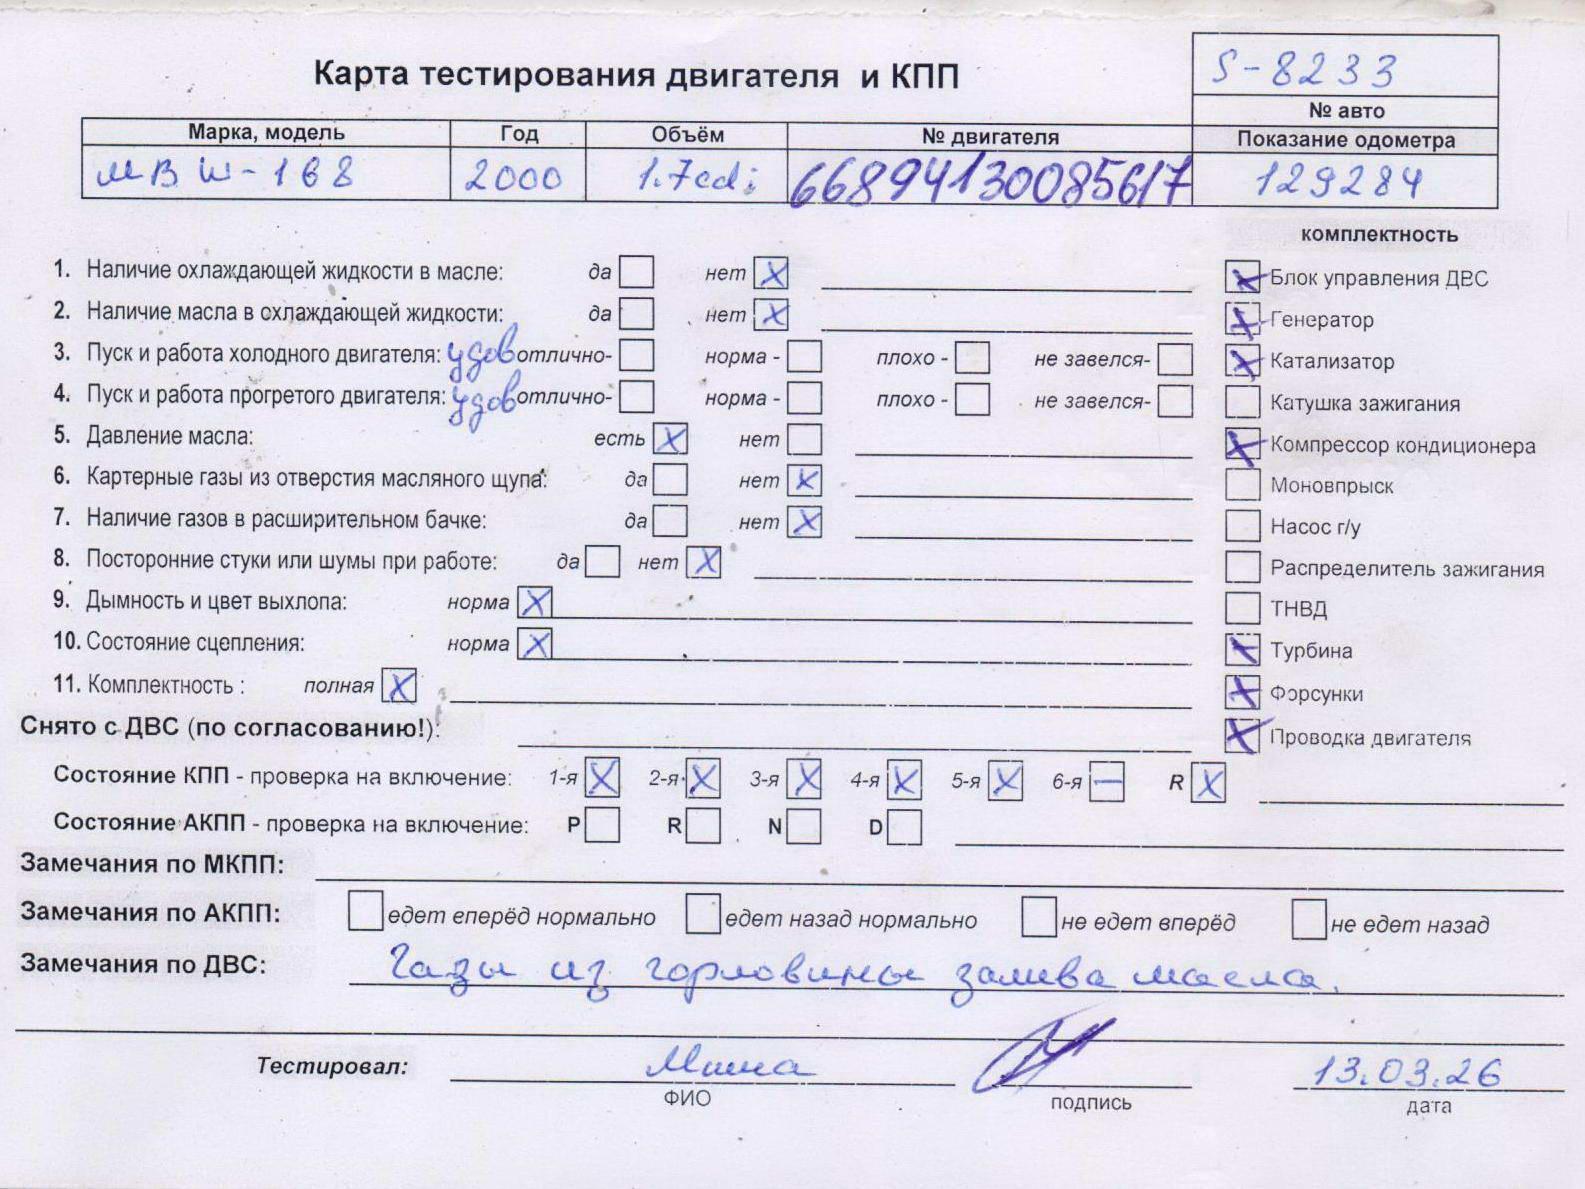 S-8233
Карта тестирования двигателя и КПП
№ авто
Марка, модель Год Объём № двигателя Показание одометра
МВ W-168 2000 1.7cdi 66894130085617 129284
комплектность
1. Наличие охлаждающей жидкости в масле: да нет X
2. Наличие масла в охлаждающей жидкости: да нет X
3. Пуск и работа холодного двигателя: удов отлично- норма - плохо - не завелся-
4. Пуск и работа прогретого двигателя: удов отлично- норма - плохо - не завелся-
5. Давление масла: есть X нет
6. Картерные газы из отверстия масляного щупа: да нет X
7. Наличие газов в расширительном бачке: да нет X
8. Посторонние стуки или шумы при работе: да нет X
9. Дымность и цвет выхлопа: норма X
10. Состояние сцепления: норма X
11. Комплектность : полная X
X Блок управления ДВС
X Генератор
X Катализатор
Катушка зажигания
X Компрессор кондиционера
Моновпрыск
Насос г/у
Распределитель зажигания
ТНВД
X Турбина
X Форсунки
X Проводка двигателя
Снято с ДВС (по согласованию!):
Состояние КПП - проверка на включение: 1-я X 2-я X 3-я X 4-я X 5-я X 6-я — R X
Состояние АКПП - проверка на включение: P R N D
Замечания по МКПП:
Замечания по АКПП: едет вперёд нормально едет назад нормально не едет вперёд не едет назад
Замечания по ДВС: Газы из горловины залива масла.
Тестировал: Миша 13.03.26
ФИО подпись дата